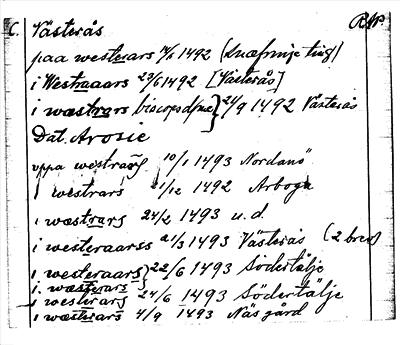 C. Västerås RAP
paa westerars 14/6 1492 (Knæfminje ting)
i Westraaars 23/6 1492 [Västerås]
i wæstrars biscopsdøme } 24/9 1492 Västerås
Dat. Arosie
uppa westrars 10/1 1493 Nordanö
i westrars 21/12 1492 Arboga
i wæstrars 24/2 1493 u.d.
i westeraarss 21/3 1493 Västerås (2 brev)
i westeraars } 22/6 1493 Södertälje
i wæsterars
i westerars 24/6 1493 Södertälje
i wæsterars 4/9 1493 Näsgård